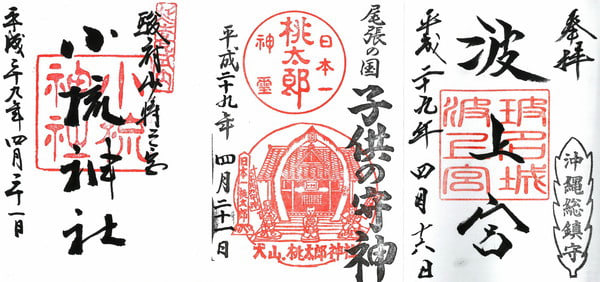 駿府
小梳神社
小梳
神社
平成二十九年四月二十一日
尾張の国
子供の守神
日本一
桃太郎
神霊
日本一桃太郎
犬山・桃太郎神社
平成二十九年 四月二十一日
奉拝
沖縄総鎮守
波上宮
波上宮
平成二十九年 四月十六日